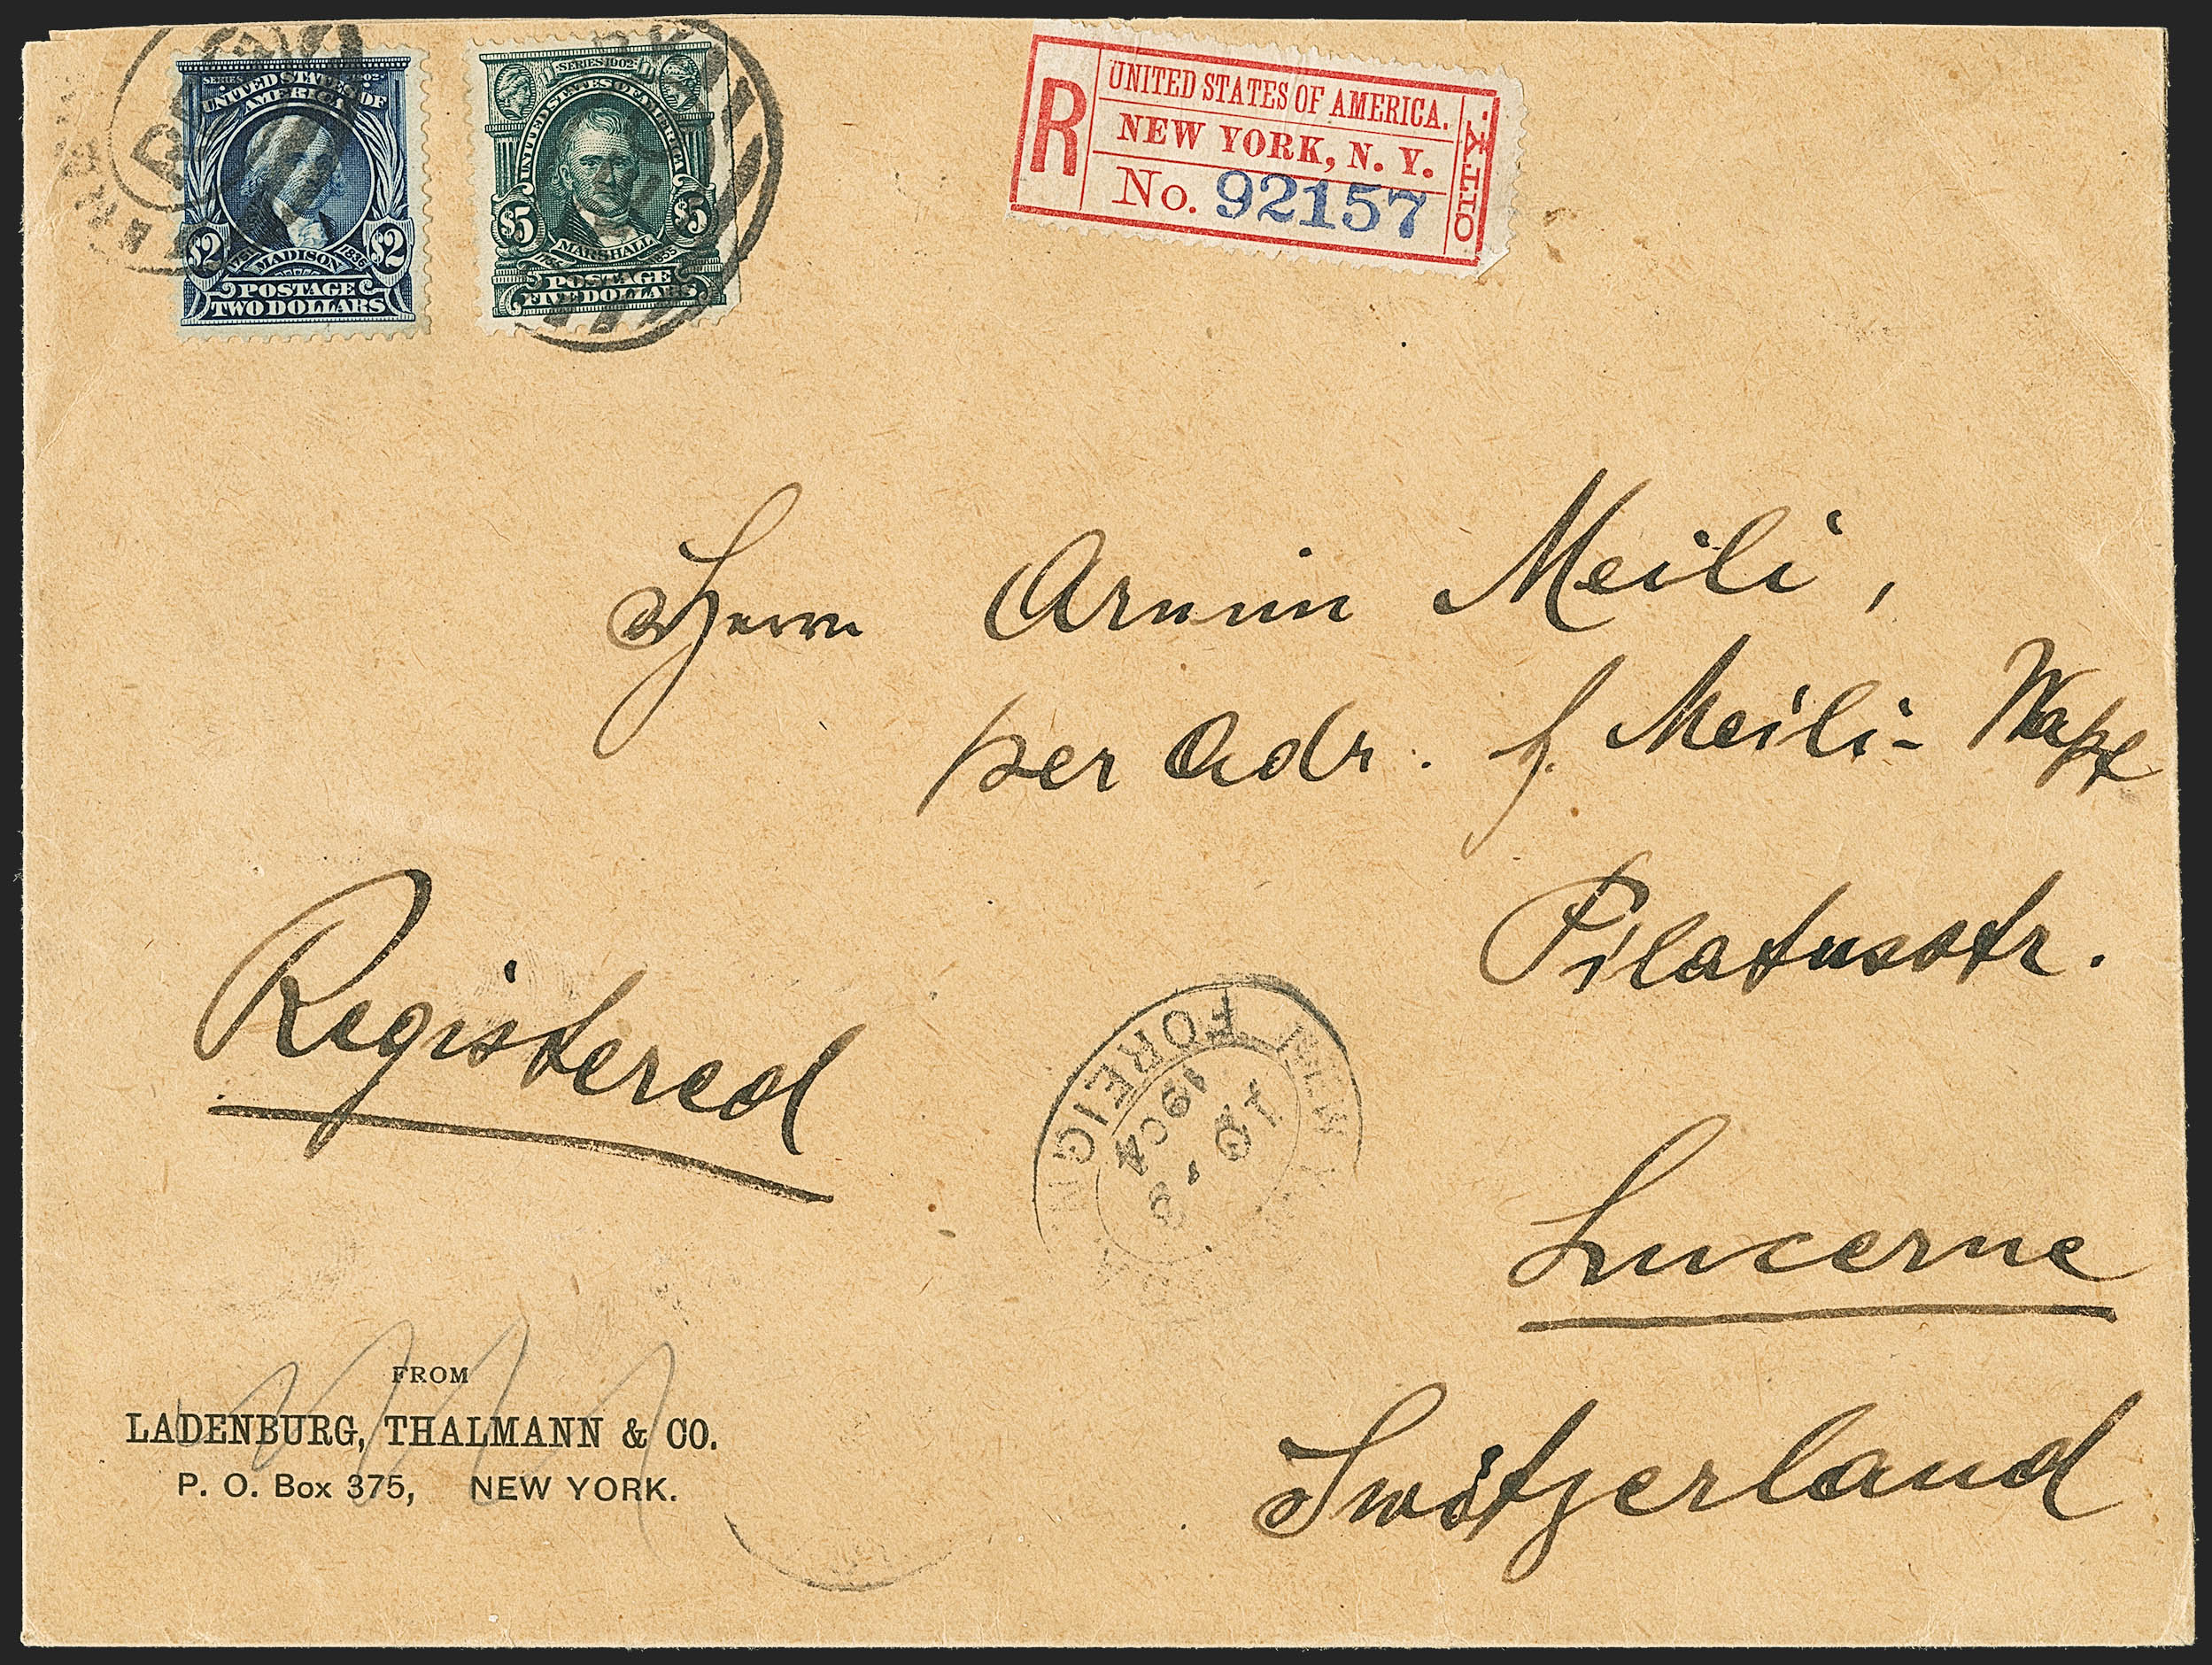 SERIES 1902
UNITED STATES OF
AMERICA
$2 $2
1751 MADISON 1836
POSTAGE
TWO DOLLARS
SERIES 1902
UNITED STATES OF AMERICA
$5 $5
1755 MARSHALL 1835
POSTAGE
FIVE DOLLARS
R
UNITED STATES OF AMERICA.
NEW YORK, N. Y.
No. 92157
Herrn Armin Meili,
per Adr. f. Meili-
Pilatusstr.
Registered
FOREIGN
Lucerne
Switzerland
FROM
LADENBURG, THALMANN & CO.
P. O. Box 375, NEW YORK.